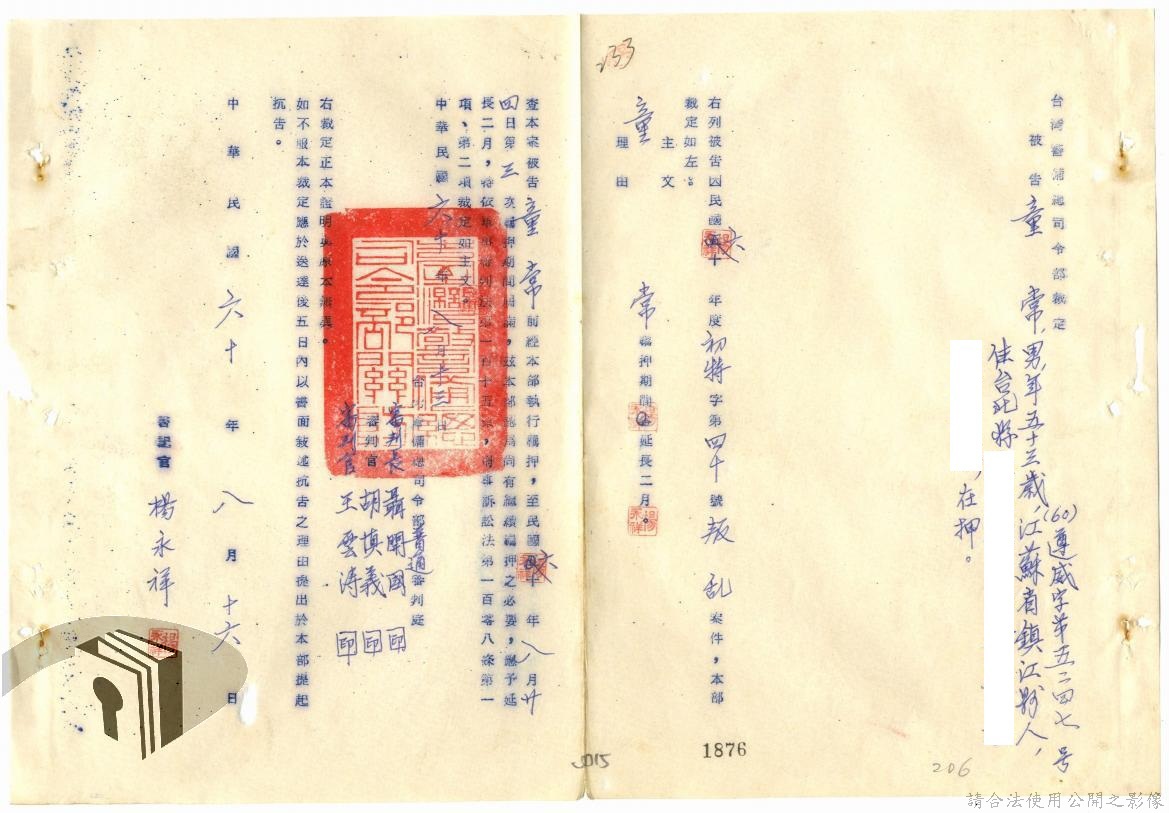 台灣警備總司令部裁定
(60)遵威字第五二四七号
被告童常,男,年五十三歲,江蘇省鎮江縣人,
住台北縣
,在押。
右列被告因民國六十年度初特字第四十號叛乱案件,本部
裁定如左:
主文
童常羈押期間延長二月。
理由
查本案被告童常前經本部執行羈押,至民國六十年八月廿
四日第三次羈押期間屆滿,茲本部認為尚有繼續羈押之必要,應予延
長二月,特依軍事審判法第一百十五條,刑事訴訟法第一百零八條第一
項、第二項裁定如主文。
中華民國六十年八月十三日
台灣警備總司令部普通審判庭
審判長聶開國印
審判官胡慎義印
審判官王雲濤印
右裁定正本證明與原本無異。
如不服本裁定應於送達後五日內以書面敘述抗告之理由提出於本部提起
抗告。
中華民國六十年八月十六日
書記官楊永祥
1876
206
請合法使用公開之影像